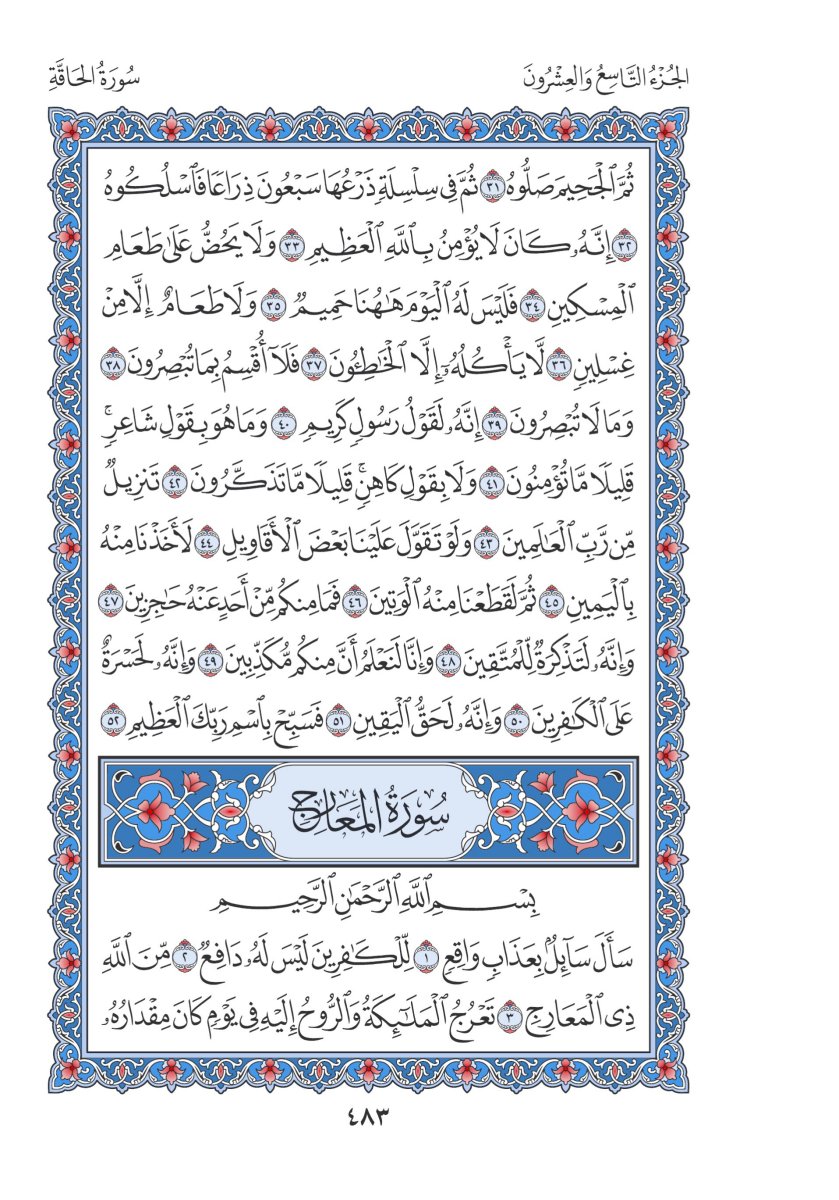 الجُزْءُ التَّاسِعُ وَالعِشْرُونَ
سُورَةُ الحَاقَّةِ
ثُمَّ ٱلْجَحِيمَ صَلُّوهُ ٣١ ثُمَّ فِي سِلْسِلَةٍ ذَرْعُهَا سَبْعُونَ ذِرَاعًا فَٱسْلُكُوهُ
٣٢ إِنَّهُۥ كَانَ لَا يُؤْمِنُ بِٱللَّهِ ٱلْعَظِيمِ ٣٣ وَلَا يَحُضُّ عَلَىٰ طَعَامِ
ٱلْمِسْكِينِ ٣٤ فَلَيْسَ لَهُ ٱلْيَوْمَ هَٰهُنَا حَمِيمٌ ٣٥ وَلَا طَعَامٌ إِلَّا مِنْ
غِسْلِينٍ ٣٦ لَّا يَأْكُلُهُۥٓ إِلَّا ٱلْخَٰطِـُٔونَ ٣٧ فَلَآ أُقْسِمُ بِمَا تُبْصِرُونَ ٣٨
وَمَا لَا تُبْصِرُونَ ٣٩ إِنَّهُۥ لَقَوْلُ رَسُولٍ كَرِيمٍ ٤٠ وَمَا هُوَ بِقَوْلِ شَاعِرٍۚ
قَلِيلًا مَّا تُؤْمِنُونَ ٤١ وَلَا بِقَوْلِ كَاهِنٍۚ قَلِيلًا مَّا تَذَكَّرُونَ ٤٢ تَنزِيلٌ
مِّن رَّبِّ ٱلْعَٰلَمِينَ ٤٣ وَلَوْ تَقَوَّلَ عَلَيْنَا بَعْضَ ٱلْأَقَاوِيلِ ٤٤ لَأَخَذْنَا مِنْهُ
بِٱلْيَمِينِ ٤٥ ثُمَّ لَقَطَعْنَا مِنْهُ ٱلْوَتِينَ ٤٦ فَمَا مِنكُم مِّنْ أَحَدٍ عَنْهُ حَٰجِزِينَ ٤٧
وَإِنَّهُۥ لَتَذْكِرَةٌ لِّلْمُتَّقِينَ ٤٨ وَإِنَّا لَنَعْلَمُ أَنَّ مِنكُم مُّكَذِّبِينَ ٤٩ وَإِنَّهُۥ لَحَسْرَةٌ
عَلَى ٱلْكَٰفِرِينَ ٥٠ وَإِنَّهُۥ لَحَقُّ ٱلْيَقِينِ ٥١ فَسَبِّحْ بِٱسْمِ رَبِّكَ ٱلْعَظِيمِ ٥٢
سُورَةُ المَعَارِجِ
بِسْمِ ٱللَّهِ ٱلرَّحْمَٰنِ ٱلرَّحِيمِ
سَأَلَ سَآئِلٌۢ بِعَذَابٍ وَاقِعٍ ١ لِّلْكَٰفِرِينَ لَيْسَ لَهُۥ دَافِعٌ ٢ مِّنَ ٱللَّهِ
ذِي ٱلْمَعَارِجِ ٣ تَعْرُجُ ٱلْمَلَٰٓئِكَةُ وَٱلرُّوحُ إِلَيْهِ فِي يَوْمٍ كَانَ مِقْدَارُهُۥ
٤٨٣